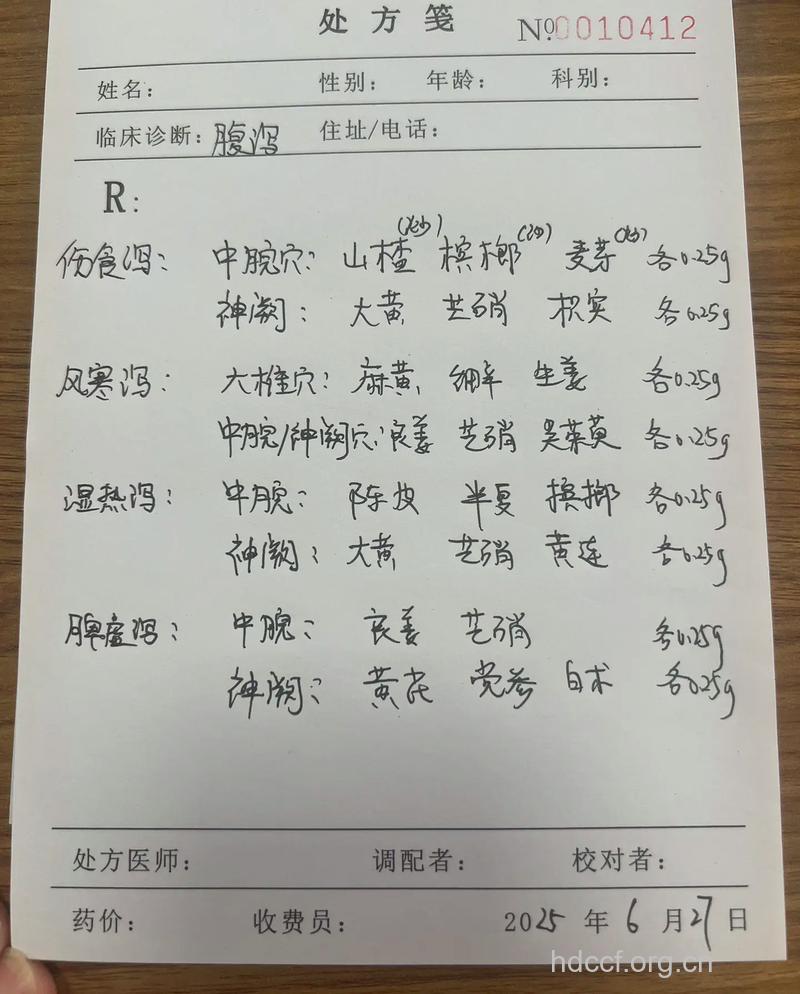 处方笺 №.0010412
姓名： 性别： 年龄： 科别：
临床诊断：腹泻 住址/电话：
R：
伤食泻： 中脘穴： 山楂(炒) 槟榔(炒) 麦芽(炒) 各0.25g
神阙： 大黄 芒硝 枳实 各0.25g
风寒泻： 大椎穴： 麻黄 细辛 生姜 各0.25g
中脘/神阙穴：良姜 芒硝 吴茱萸 各0.25g
湿热泻： 中脘： 陈皮 半夏 槟榔 各0.25g
神阙： 大黄 芒硝 黄连 各0.25g
脾虚泻： 中脘： 良姜 芒硝 各0.25g
神阙： 黄芪 党参 白术 各0.25g
处方医师： 调配者： 校对者：
药价： 收费员： 2025 年 6 月 27 日
hdccf.org.cn